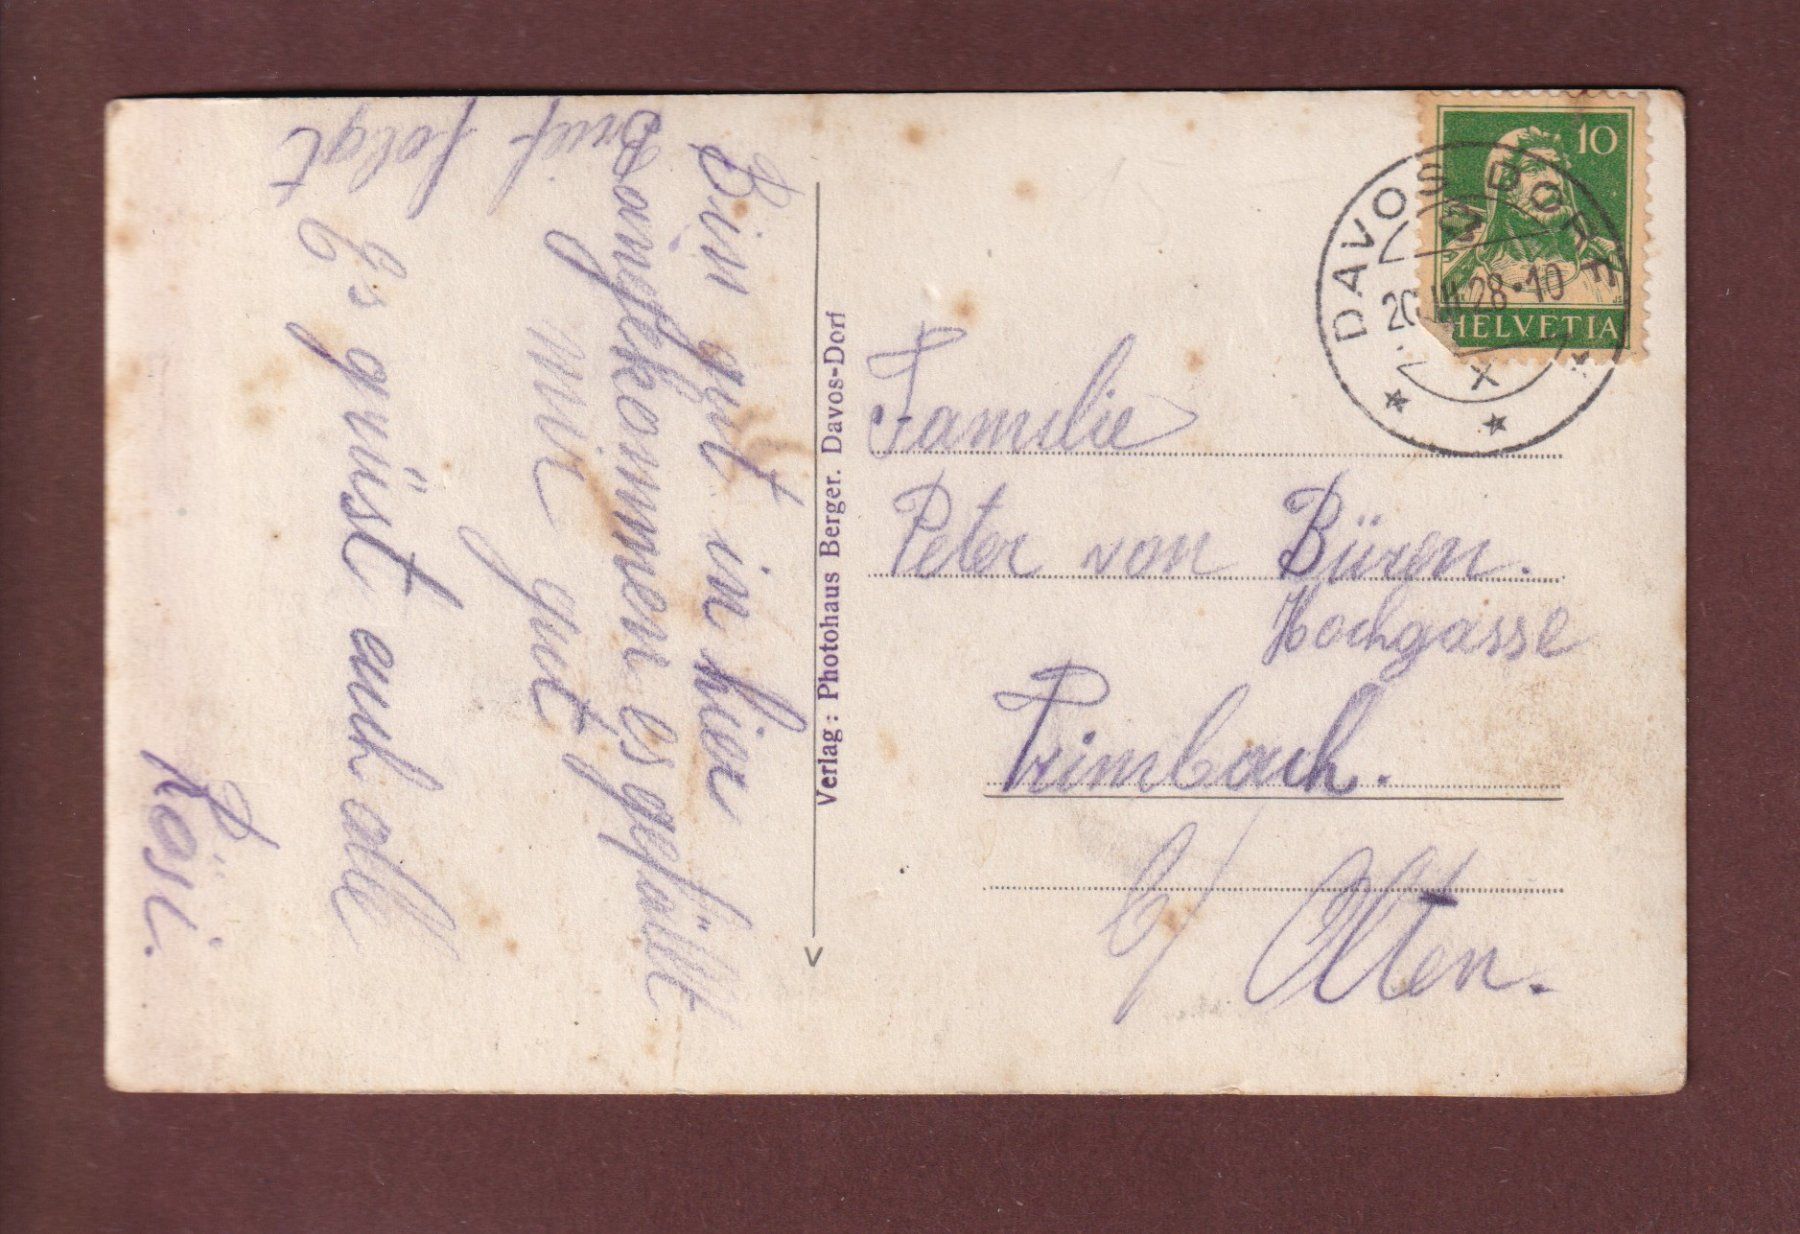 Bin gut in hier
angekommen es gefällt
mir gut
Brief folgt
Es grüst euch alle
Rösi.
Verlag: Photohaus Berger. Davos-Dorf
10
HELVETIA
DAVOS DORF
28·10
X
Familie
Peter von Büren.
Hochgasse
Trimbach.
b/ Olten.